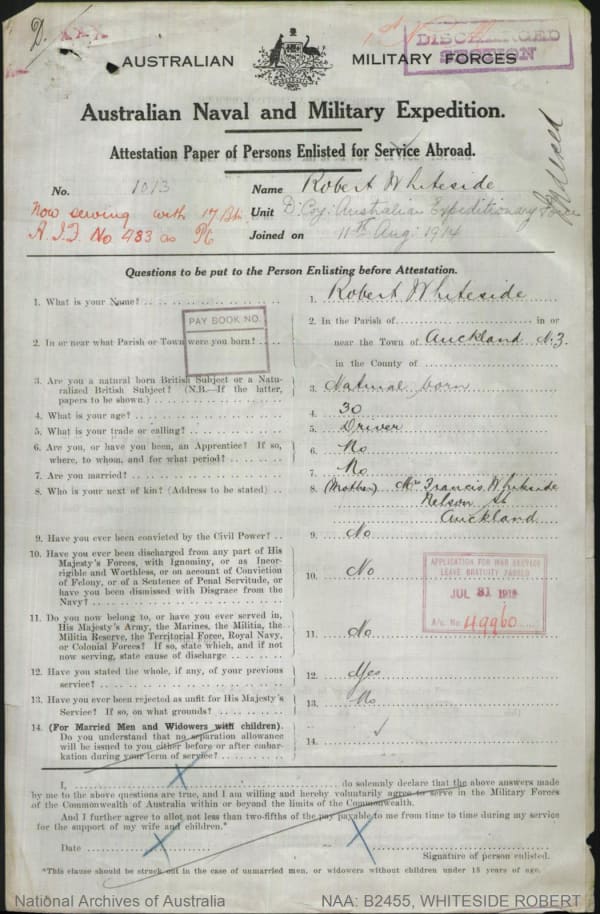 D.
DISCHARGED
SECTION
AUSTRALIAN MILITARY FORCES
Australian Naval and Military Expedition.
Attestation Paper of Persons Enlisted for Service Abroad.
No. 1013 Name Robert Whiteside
Now serving with 17 Bn Unit D Coy: Australian Expeditionary Force
A.I.F. No 483 as Pte Joined on 11th Aug: 1914
Questions to be put to the Person Enlisting before Attestation.
1. What is your Name? 1. Robert Whiteside
PAY BOOK NO.
2. In or near what Parish or Town were you born? 2. In the Parish of in or
near the Town of Auckland N.Z.
in the County of
3. Are you a natural born British Subject or a Natu-
ralized British Subject? (N.B.—If the latter,
papers to be shown.) 3. Natural born
4. What is your age? 4. 30
5. What is your trade or calling? 5. Driver
6. Are you, or have you been, an Apprentice? If so,
where, to whom, and for what period? 6. No
7. Are you married? 7. No
8. Who is your next of kin? (Address to be stated) 8. (Mother) Mrs Francis Whiteside
Nelson St
Auckland
9. Have you ever been convicted by the Civil Power? 9. No
10. Have you ever been discharged from any part of His
Majesty's Forces, with Ignominy, or as Incor-
rigible and Worthless, or on account of Conviction
of Felony, or of a Sentence of Penal Servitude, or
have you been Dismissed with Disgrace from the
Navy? 10. No
APPLICATION FOR WAR SERVICE
LEAVE GRATUITY PASSED
JUL 31 1919
A/c. No. 49960
11. Do you now belong to, or have you ever served in,
His Majesty's Army, the Marines, the Militia, the
Militia Reserve, the Territorial Force, Royal Navy,
or Colonial Forces? If so, state which, and if not
now serving, state cause of discharge 11. No
12. Have you stated the whole, if any, of your previous
service? 12. Yes
13. Have you ever been rejected as unfit for His Majesty's
Service? If so, on what grounds? 13. No
14. (For Married Men and Widowers with children).
Do you understand that no separation allowance
will be issued to you either before or after embar-
kation during your term of service? 14. ✓
I, do solemnly declare that the above answers made
by me to the above questions are true, and I am willing and hereby voluntarily agree to serve in the Military Forces
of the Commonwealth of Australia within or beyond the limits of the Commonwealth.
And I further agree to allot not less than two-fifths of the pay payable to me from time to time during my service
for the support of my wife and children.*
Date
Signature of person enlisted.
*This clause should be struck out in the case of unmarried men, or widowers without children under 18 years of age.
National Archives of Australia NAA: B2455, WHITESIDE ROBERT